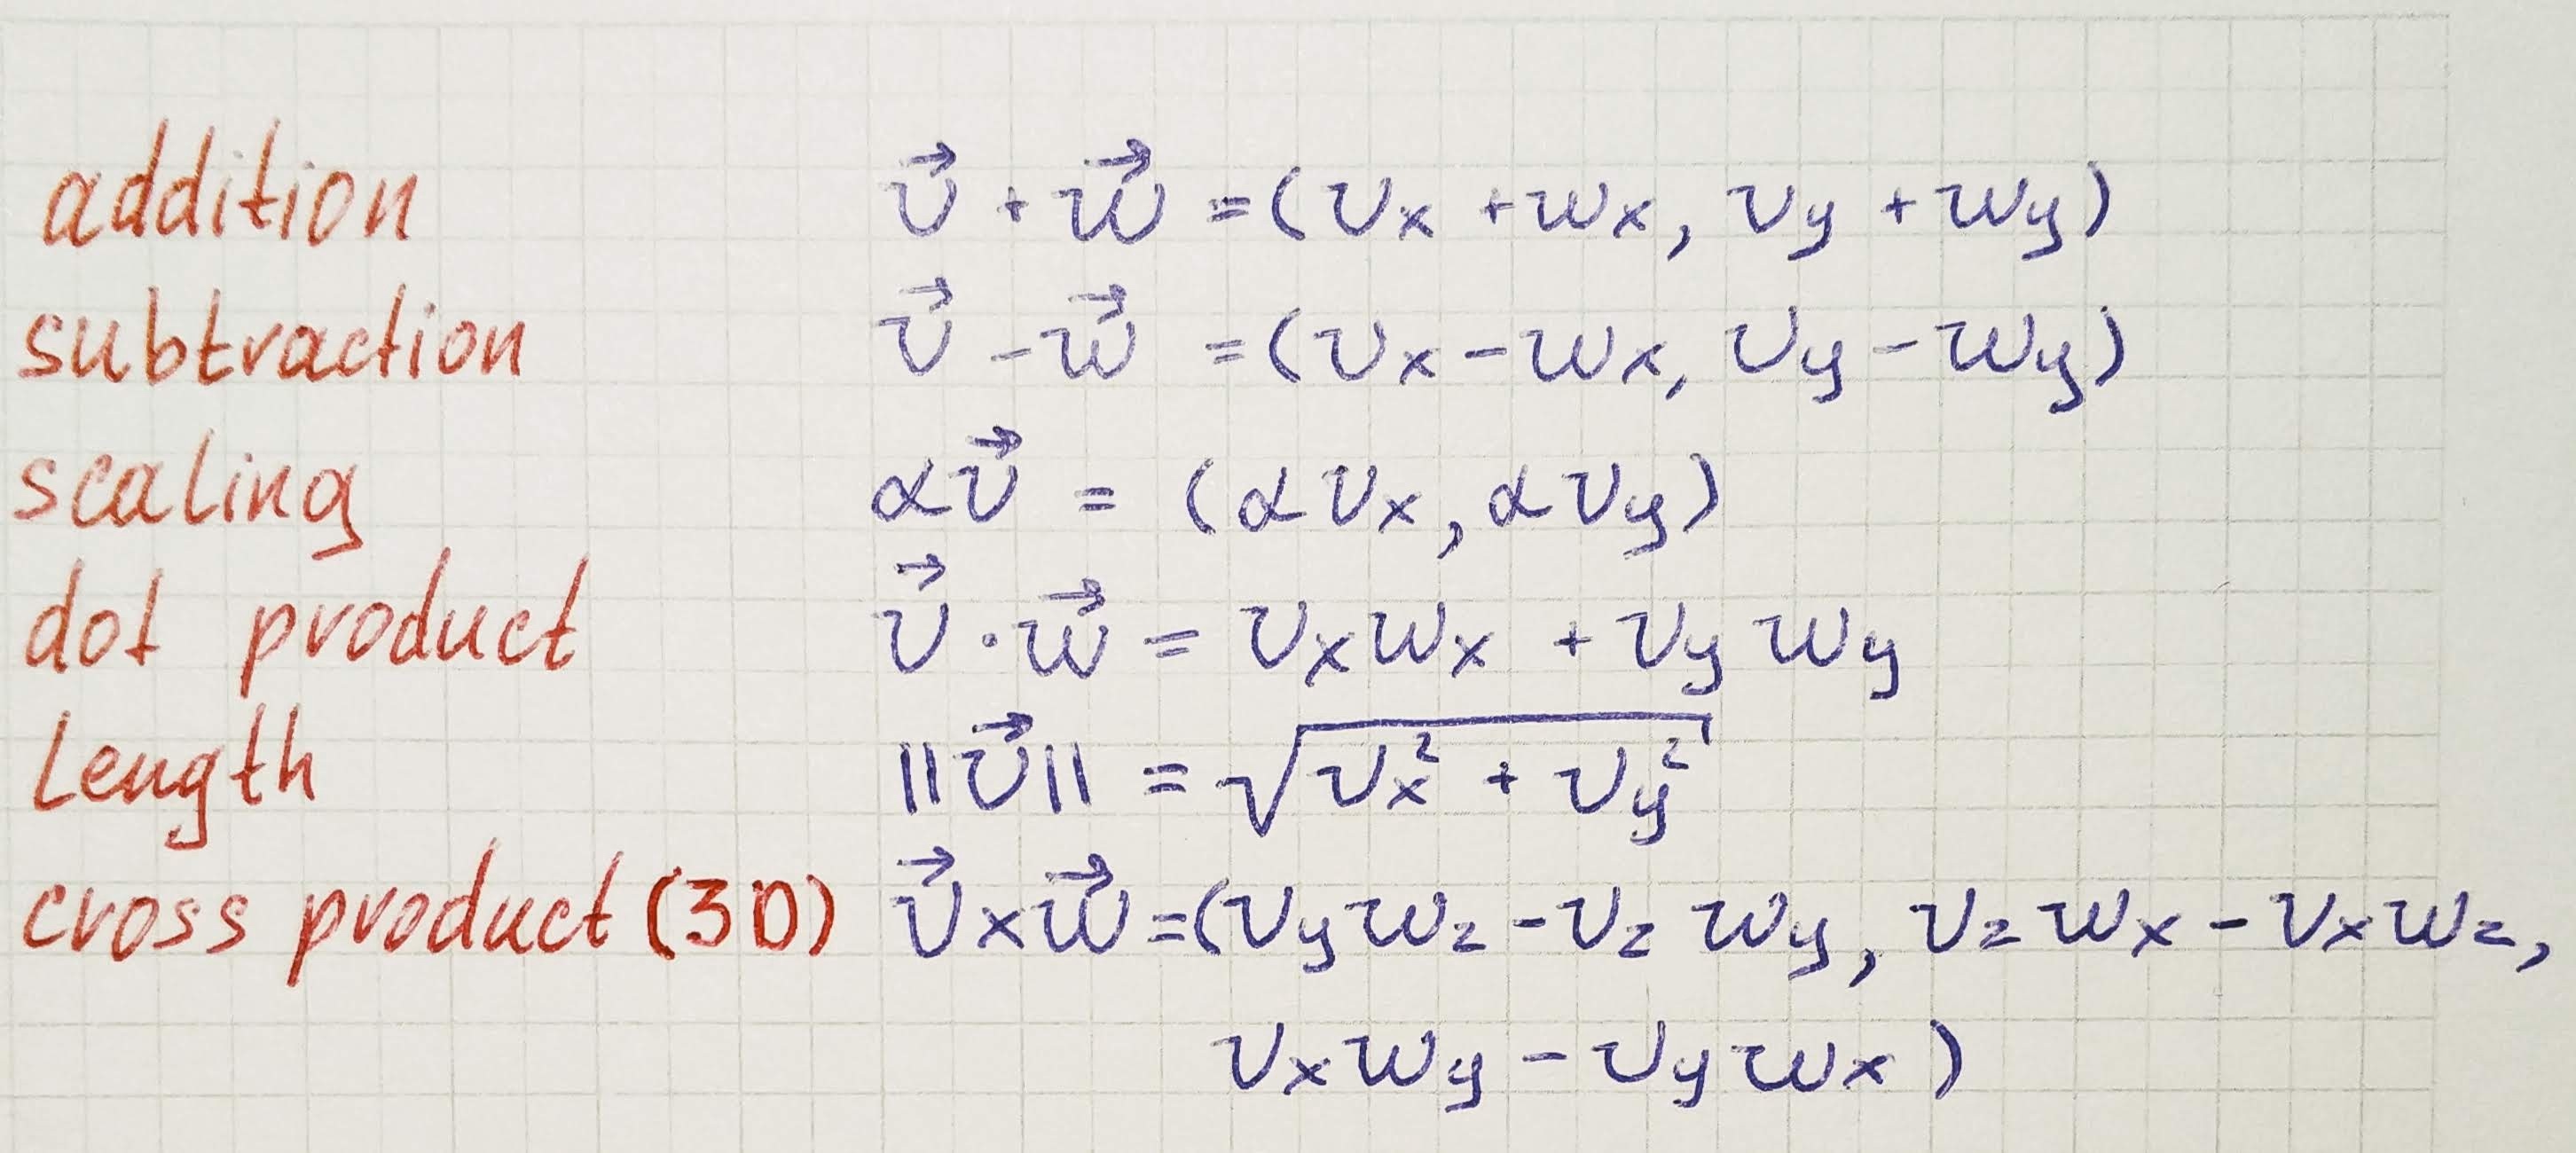 addition v⃗ + w⃗ = (vx + wx, vy + wy)
subtraction v⃗ - w⃗ = (vx - wx, vy - wy)
scaling αv⃗ = (αvx, αvy)
dot product v⃗ · w⃗ = vxwx + vywy
Length ||v⃗|| = √(vx² + vy²)
cross product (3D) v⃗ × w⃗ = (vywz - vzwy, vzwx - vxwz,
vxwy - vywx)